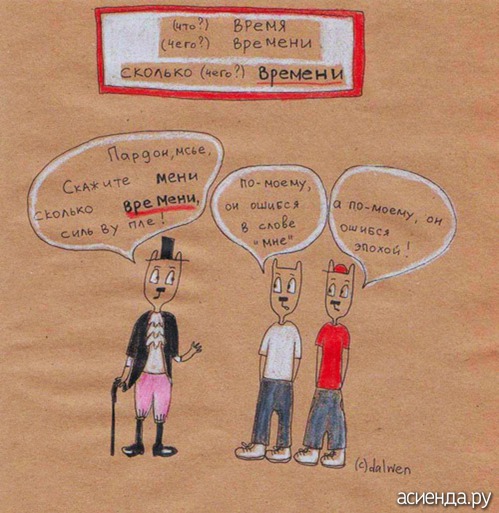 (что?) время
(чего?) времени
сколько (чего?) времени
Пардон, мсье,
скажите мени
сколько времени,
силь ву пле!
по-моему,
он ошибся
в слове
"мне"
а по-моему, он
ошибся
эпохой!
(c)dalwen
асиенда.ру